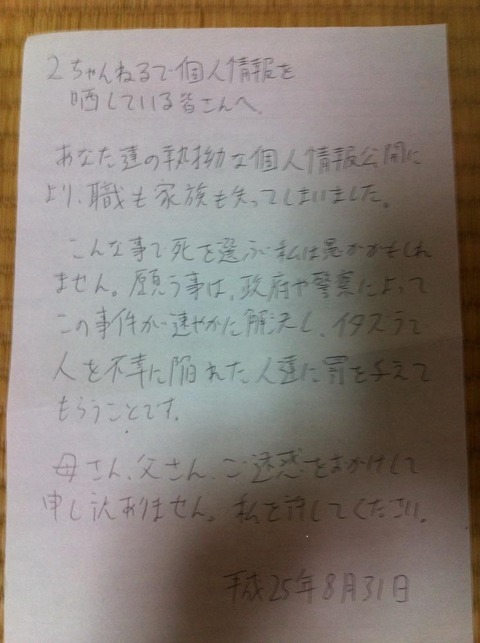 2ちゃんねるで個人情報を
晒している皆さんへ
あなた達の執拗な個人情報公開に
より、職も家族も失ってしまいました。
こんな事で死を選ぶ私は愚かかもしれ
ません。願う事は、政府や警察によって
この事件が速やかに解決し、イタズラで
人を不幸に陥れた人達に罰を与えて
もらうことです。
母さん、父さん、ご迷惑をおかけして
申し訳ありません。私を許してください。
平成25年8月31日